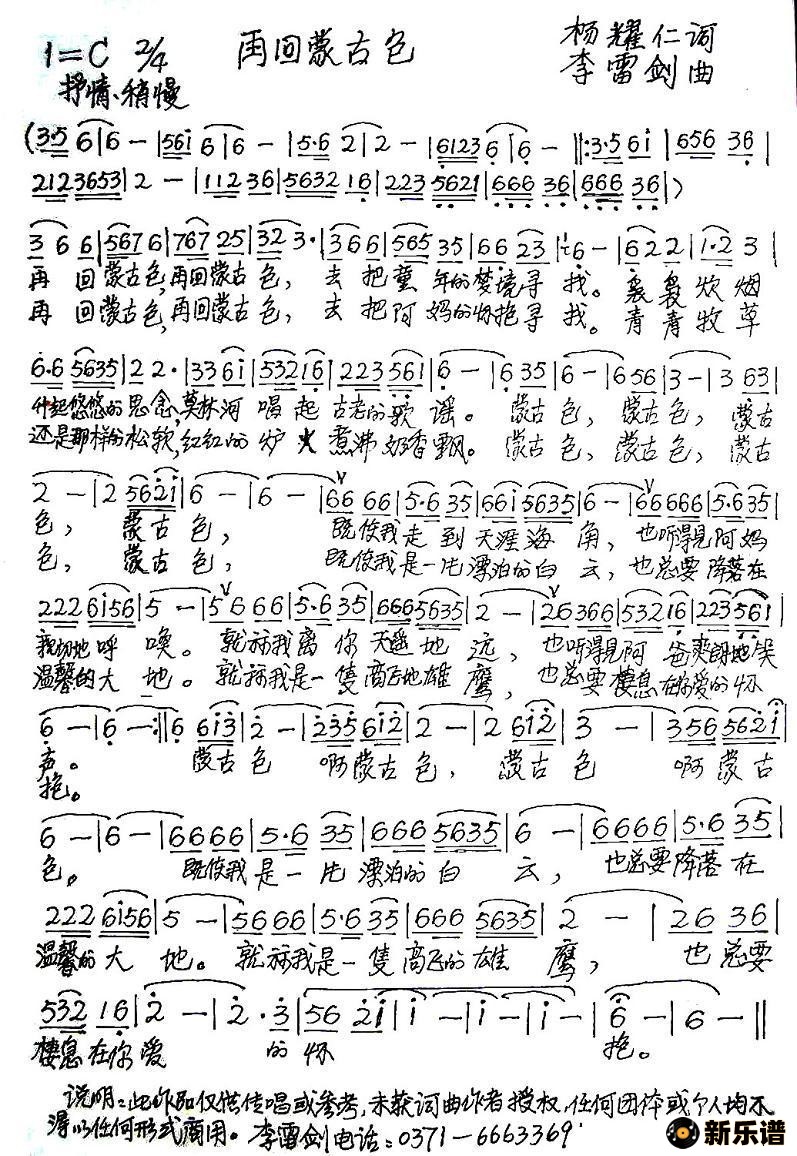 1=C 2/4 再回蒙古包 杨耀仁词
抒情、稍慢 李雷剑曲
(3·5 6|6 - |561 6|6 - |5·6 2|2 - |6123 6|6 - ‖:3·5 61|656 36|
2123653|2 - |112 36|5632 16|223 5621|666 36|666 36|)
3 6 6|567 6|767 25|32 3·|366|565 35|66 23|6 - |622|1·2 3|
再 回蒙古包,再回蒙古包, 去 把童 年的梦境寻 找。袅袅炊烟
再 回蒙古包,再回蒙古包, 去 把阿 妈的怀抱寻 找。青青牧草
6·6 5635|2 2·|33 61|532 16|223 561|6 - |6 35|6 - |6 56|3 - |3 63|
升起悠悠的思念,莫林河 唱 起 古老的歌 谣。 蒙古 包, 蒙古 包, 蒙古
还是那样的松软,红红的 炉 火 煮沸奶香飘。 蒙古 包, 蒙古 包, 蒙古
2 - |2 5621|6 - |6 - |66 66|5·6 35|661 5635|6 - |66666|5·6 35|
包, 蒙古包, 既使我走到天涯海 角, 也听得见阿妈
包, 蒙古包, 既使我是一片漂泊的白 云, 也总要降落在
222 6156|5 - |56 66|5·6 35|666 5635|2 - |26366|532 16|223 561|
亲切地呼 唤。 就算我离 你天遥地 远, 也听得见阿 爸爽朗地笑
温馨的大 地。 就算我是一隻高飞地雄 鹰, 也总要栖息在你爱的怀
6 - |6 - :‖6 613|2 - |235 612|2 - |2 612|3 - |356 5621|
声。 蒙古包 啊蒙古包, 蒙古包 啊蒙古
抱。
6 - |6 - |6666|5·6 35|666 5635|6 - |6666|5·6 35|
包。 既使我是一片漂泊的白 云, 也总要降落在
222 6156|5 - |5666|5·6 35|666 5635|2 - |26 36|
温馨的大 地。 就算我是一隻高飞的雄 鹰, 也总要
532 16|2 - |2·3|56 21|1 - |1 - |1 - |6 - |6 - ‖
栖息在你爱 的 怀 抱。
说明:此作品仅供传唱或参考,未获词曲作者授权,任何团体或个人均不
得以任何形式商用。李雷剑电话:0371-6663369
新乐谱